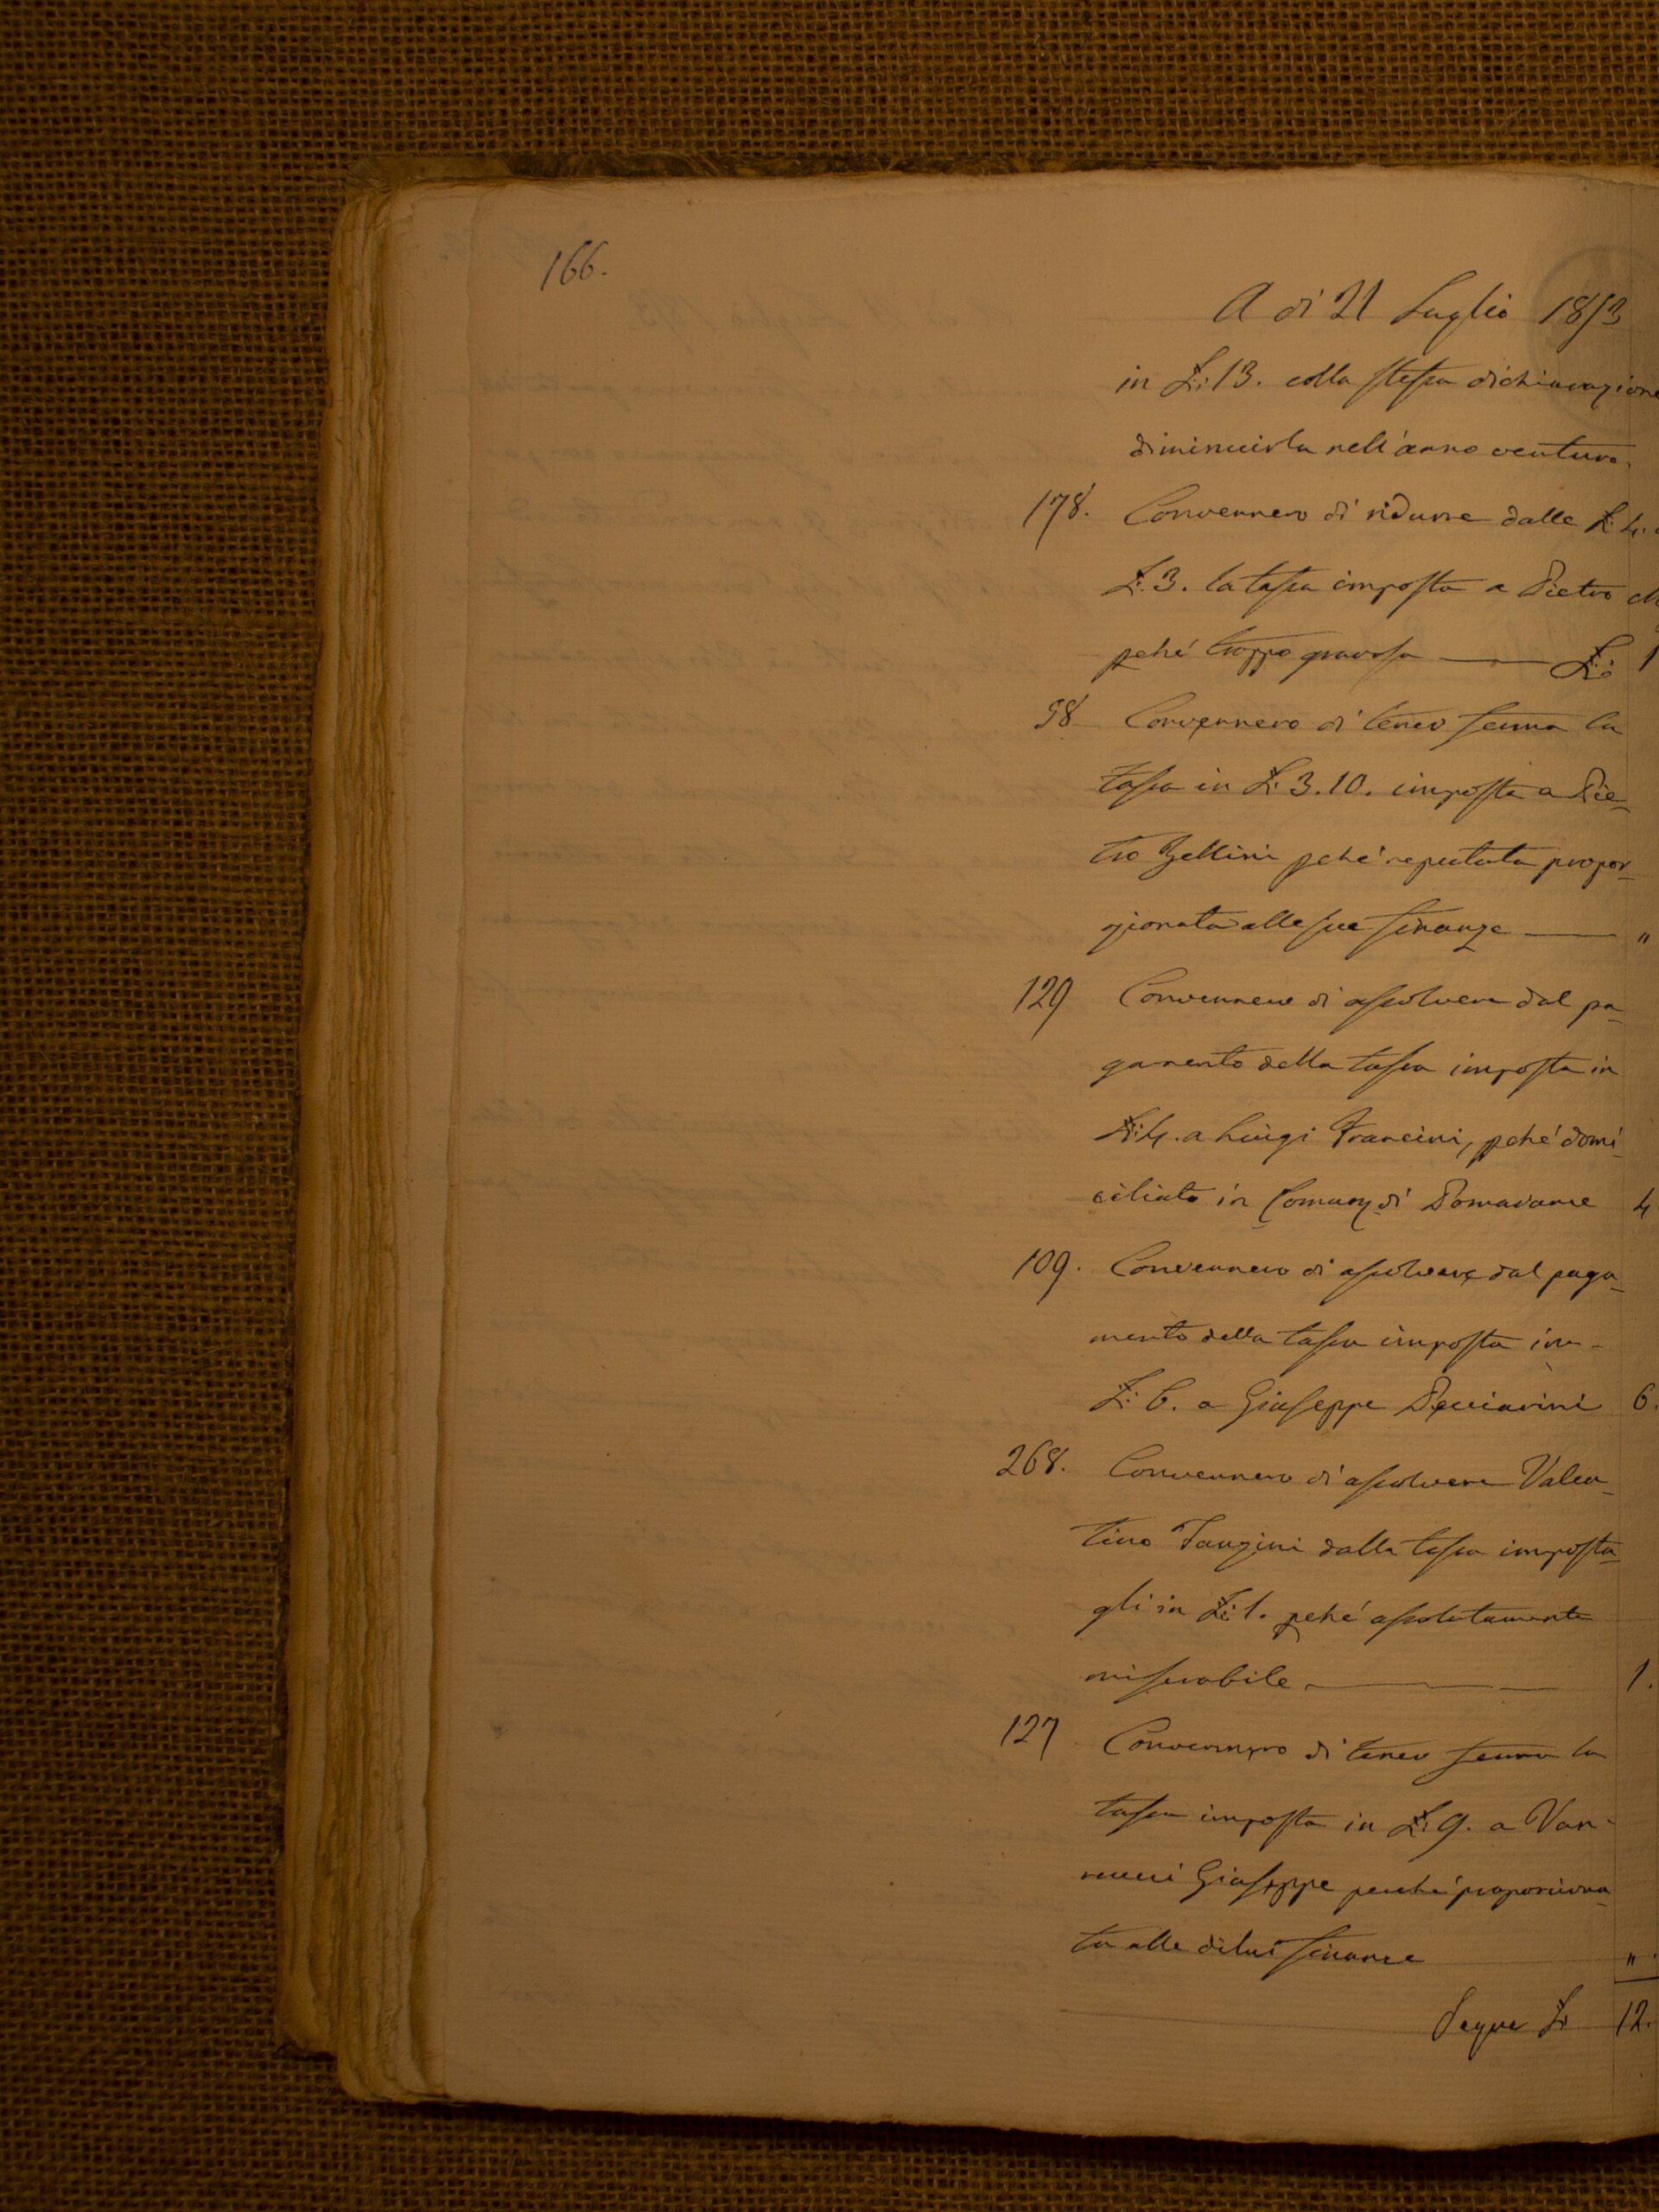 166.
A dì 21 Luglio 1853
in £: 13. colla stessa dichiarazione
diminuirla nell'anno venturo.
178. Convennero di ridurre dalle £: 4.
£: 3. la tassa imposta a Pietro
pché troppo gravosa — £: 1
98 Convennero di tener ferma la
tassa in £: 3.10. imposta a Pie-
tro Zellini pché reputata propor-
zionata alle sue finanze — "
129 Convennero di assolvere dal pa-
gamento della tassa imposta in
£: 4. a Luigi Francini, pché domi-
ciliato in Comun. di Pomarance 4
109. Convennero di assolvere dal paga-
mento della tassa imposta in -
£: 6. a Giuseppe Pecciarini 6.
268. Convennero di assolvere Valen-
tino Tanzini dalla tassa imposta-
gli in £: 1. pché assolutamente
miserabile. — 1.
127 Convennero di tener ferma la
tassa imposta in £: 9. a Van-
nucci Giuseppe perché proporciona-
ta alle di lui finance "
Segue £: 12.